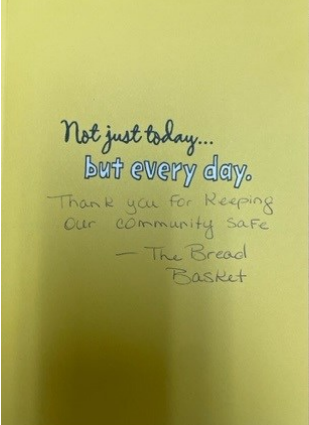 Not just today...
but every day.
Thank you for keeping
our community safe
— The Bread
Basket